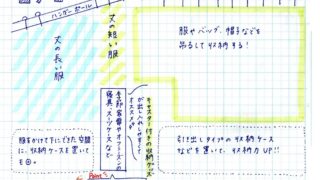 ハンガーポール
丈の長い服
丈の短い服
服やバッグ、帽子などを
吊るして収納する!
キャスター付きの収納ケースが
出し入れしやすくて
オススメ♪
季節家電やオフシーズンの
寝具、スーツケースなど
服をかけて下にできた空間
に、収納ケースを置いて
も◎。
引き出しタイプの収納ケース
などを置いて、収納力UP!!